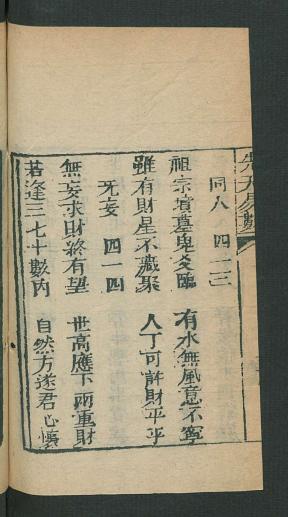 先天易數
同人 四一三
祖宗墳墓鬼爻臨 有水無風意不寧
雖有財星不藏聚 人丁可許財平平
无妄 四一四
無妄求財終有望 世高應下兩重財
若逢三七十數內 自然方遂君心懷